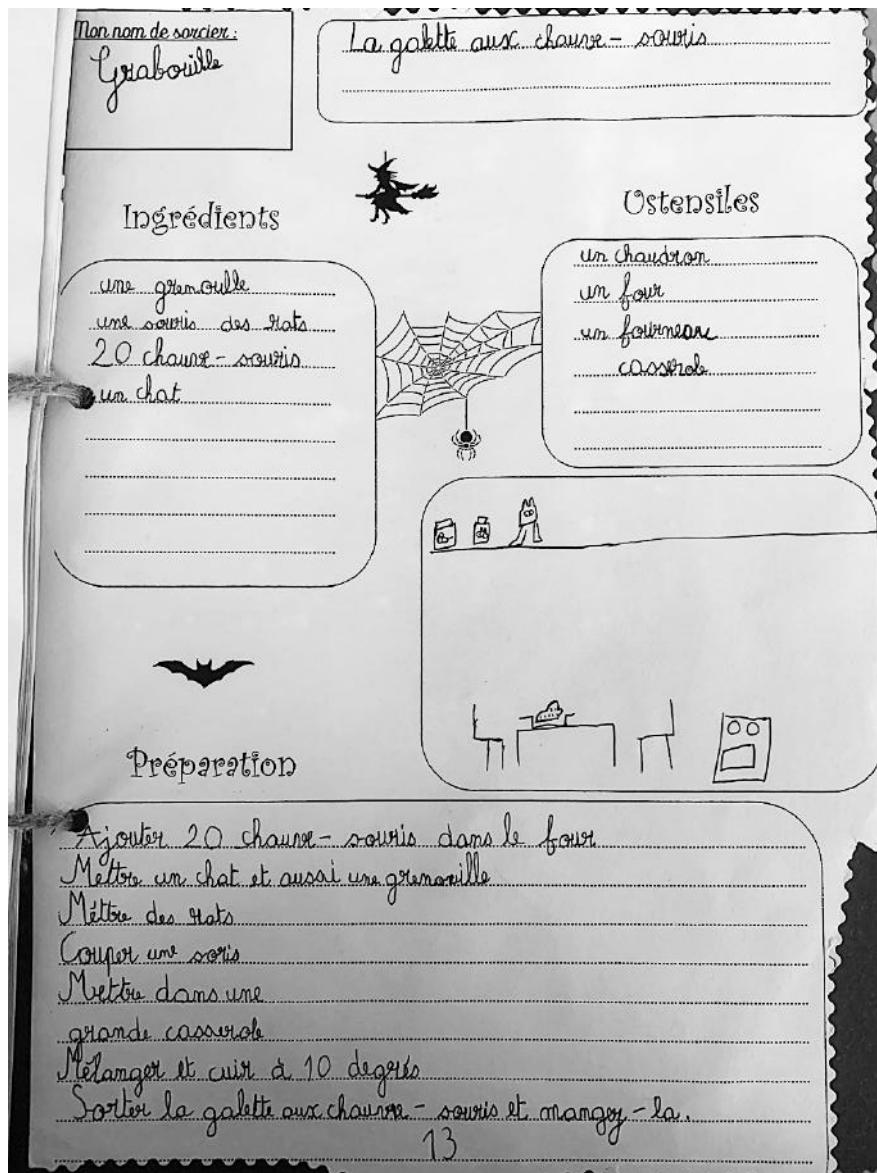 Mon nom de sorcier :
Grabouille
La galette aux chauve-souris
Ingrédients
une grenouille
une souris des rats
20 chauve-souris
un chat
Ustensiles
un chaudron
un four
un fourneau
casserole
Préparation
Ajouter 20 chauve-souris dans le four
Mettre un chat et aussi une grenouille
Méttre des rats
Couper une soris
Mettre dans une
grande casserole
Mélanger et cuir à 10 degrés
Sorter la galette aux chauve-souris et mangez-la.
13